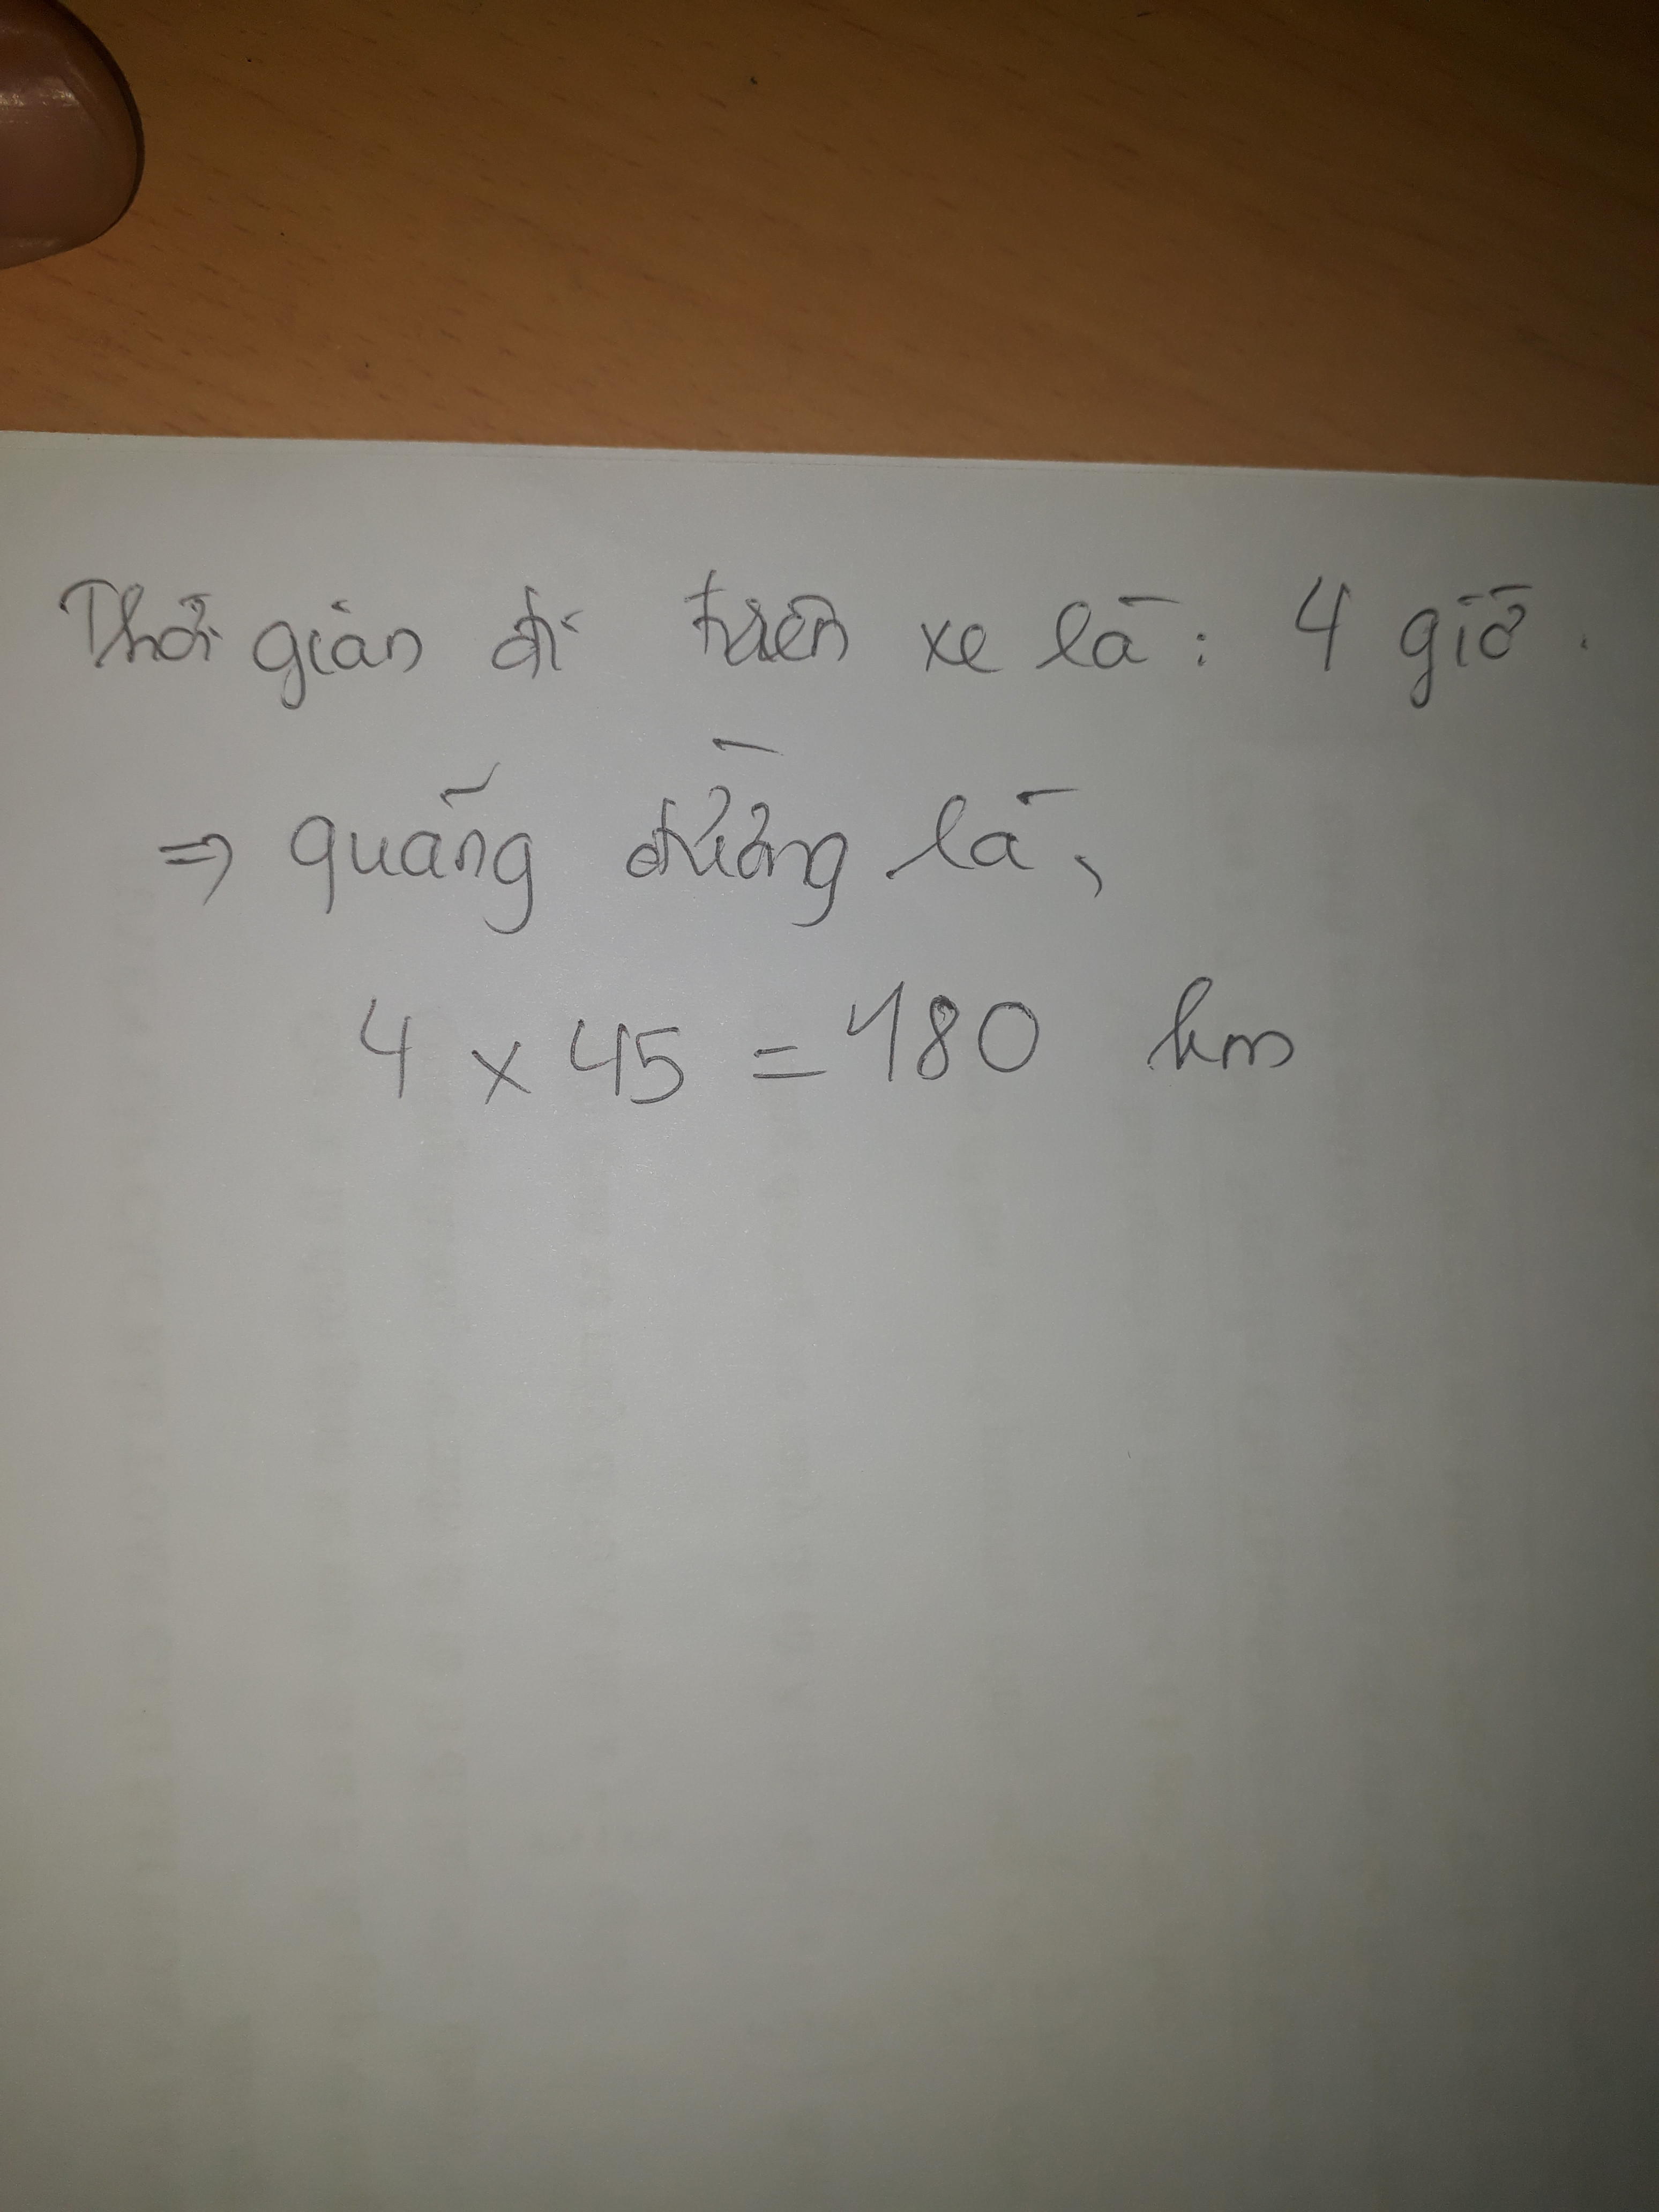 Thời gian đi trên xe là: 4 giờ.
⇒ quãng đường là,
4 x 45 = 180 km